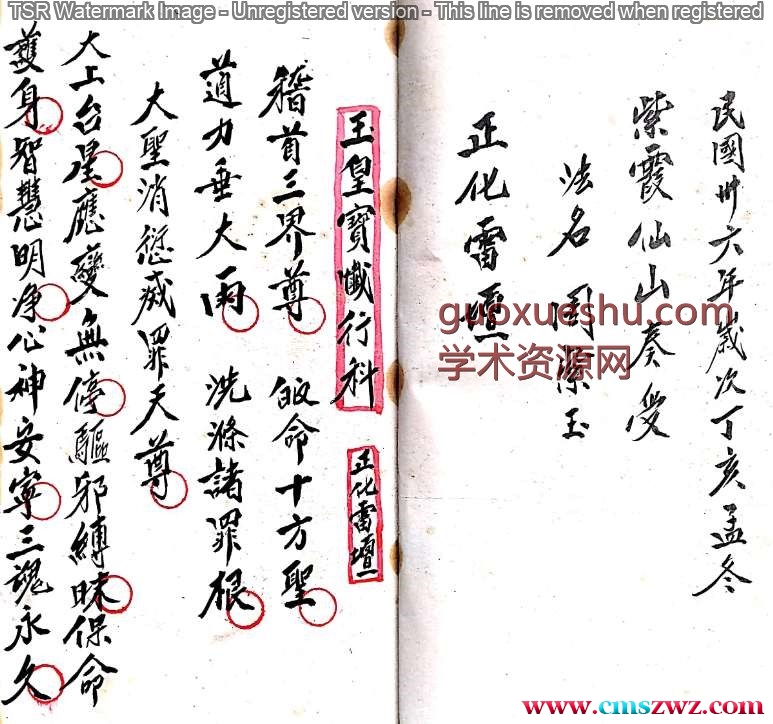 TSR Watermark Image - Unregistered version - This line is removed when registered
民國卅六年歲次丁亥孟冬
紫霞仙山奏受
法名周濚玉
正化雷壇
玉皇寶懺行科
正化雷壇
稽首三界尊 皈命十方聖
道力垂大雨 洗滌諸罪根
大聖消愆滅罪天尊
大上台星應變無停驅邪縛昧保命
護身智慧明净心神安寧三魂永久
guoxueshu.com
学术资源网
www.cmszwz.com